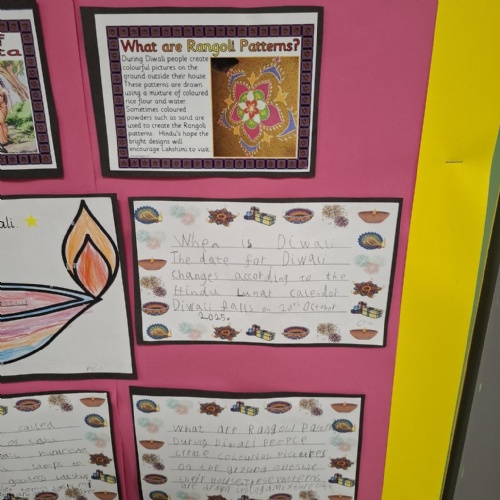 What are Rangoli Patterns?
During Diwali people create
colourful pictures on the
ground outside their house.
These patterns are drawn
using a mixture of coloured
rice flour and water.
Sometimes coloured
powders such as sand are
used to create the Rangoli
patterns. Hindu's hope the
bright designs will
encourage Lakshmi to visit.
ali.
When is Diwali
The date for Diwali
Changes according to the
Hindu Lunar calendar
Diwali falls on 20th October
2025.
called
What are Rangoli
During Diwali people
create colourful pictures
on the ground outside
their house these patterns
are drawn